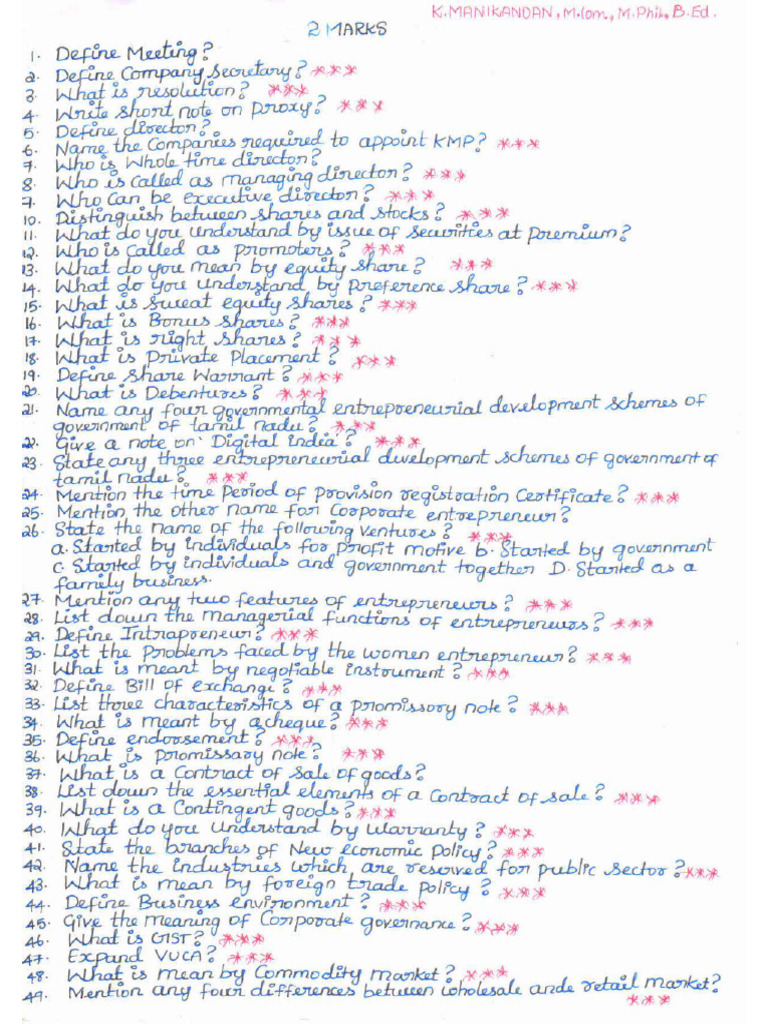 K.MANIKANDAN, M.Com., M.Phil., B.Ed.
2 MARKS
1. Define Meeting?
2. Define Company Secretary? ***
3. What is resolution? ***
4. Write short note on proxy? ***
5. Define director?
6. Name the Companies required to appoint KMP? ***
7. Who is Whole time director?
8. Who is called as managing director? ***
9. Who can be executive director? ***
10. Distinguish between shares and stocks? ***
11. What do you understand by issue of securities at premium?
12. Who is called as promoters? ***
13. What do you mean by equity share? ***
14. What do you understand by Preference share? ***
15. What is sweat equity shares? ***
16. What is Bonus shares? ***
17. What is right shares? ***
18. What is Private Placement? ***
19. Define Share Warrant? ***
20. What is Debentures? ***
21. Name any four governmental entrepreneurial development schemes of
government of tamil nadu? ***
22. Give a note on 'Digital India'? ***
23. State any three entrepreneurial development schemes of government of
tamil nadu? ***
24. Mention the time Period of provision registration Certificate? ***
25. Mention the other name for Corporate entrepreneur?
26. State the name of the following ventures? ***
a. Started by individuals for profit motive b. Started by government
c. Started by individuals and government together D. Started as a
family business.
27. Mention any two features of entrepreneurs? ***
28. List down the managerial functions of entrepreneurs? ***
29. Define Intrapreneur? ***
30. List the Problems faced by the women entrepreneur? ***
31. What is meant by negotiable instrument? ***
32. Define Bill of exchange? ***
33. List three characteristics of a promissory note? ***
34. What is meant by a cheque? ***
35. Define endorsement? ***
36. What is promissary note? ***
37. What is a Contract of Sale of goods?
38. List down the essential elements of a Contract of sale? ***
39. What is a Contingent goods? ***
40. What do you understand by warranty? ***
41. State the branches of New economic policy? ***
42. Name the industries which are reserved for public sector? ***
43. What is mean by foreign trade policy? ***
44. Define Business environment? ***
45. Give the meaning of Corporate governance? ***
46. What is GST? ***
47. Expand VUCA? ***
48. What is mean by Commodity market? ***
49. Mention any four differences between wholesale ande retail market?
***